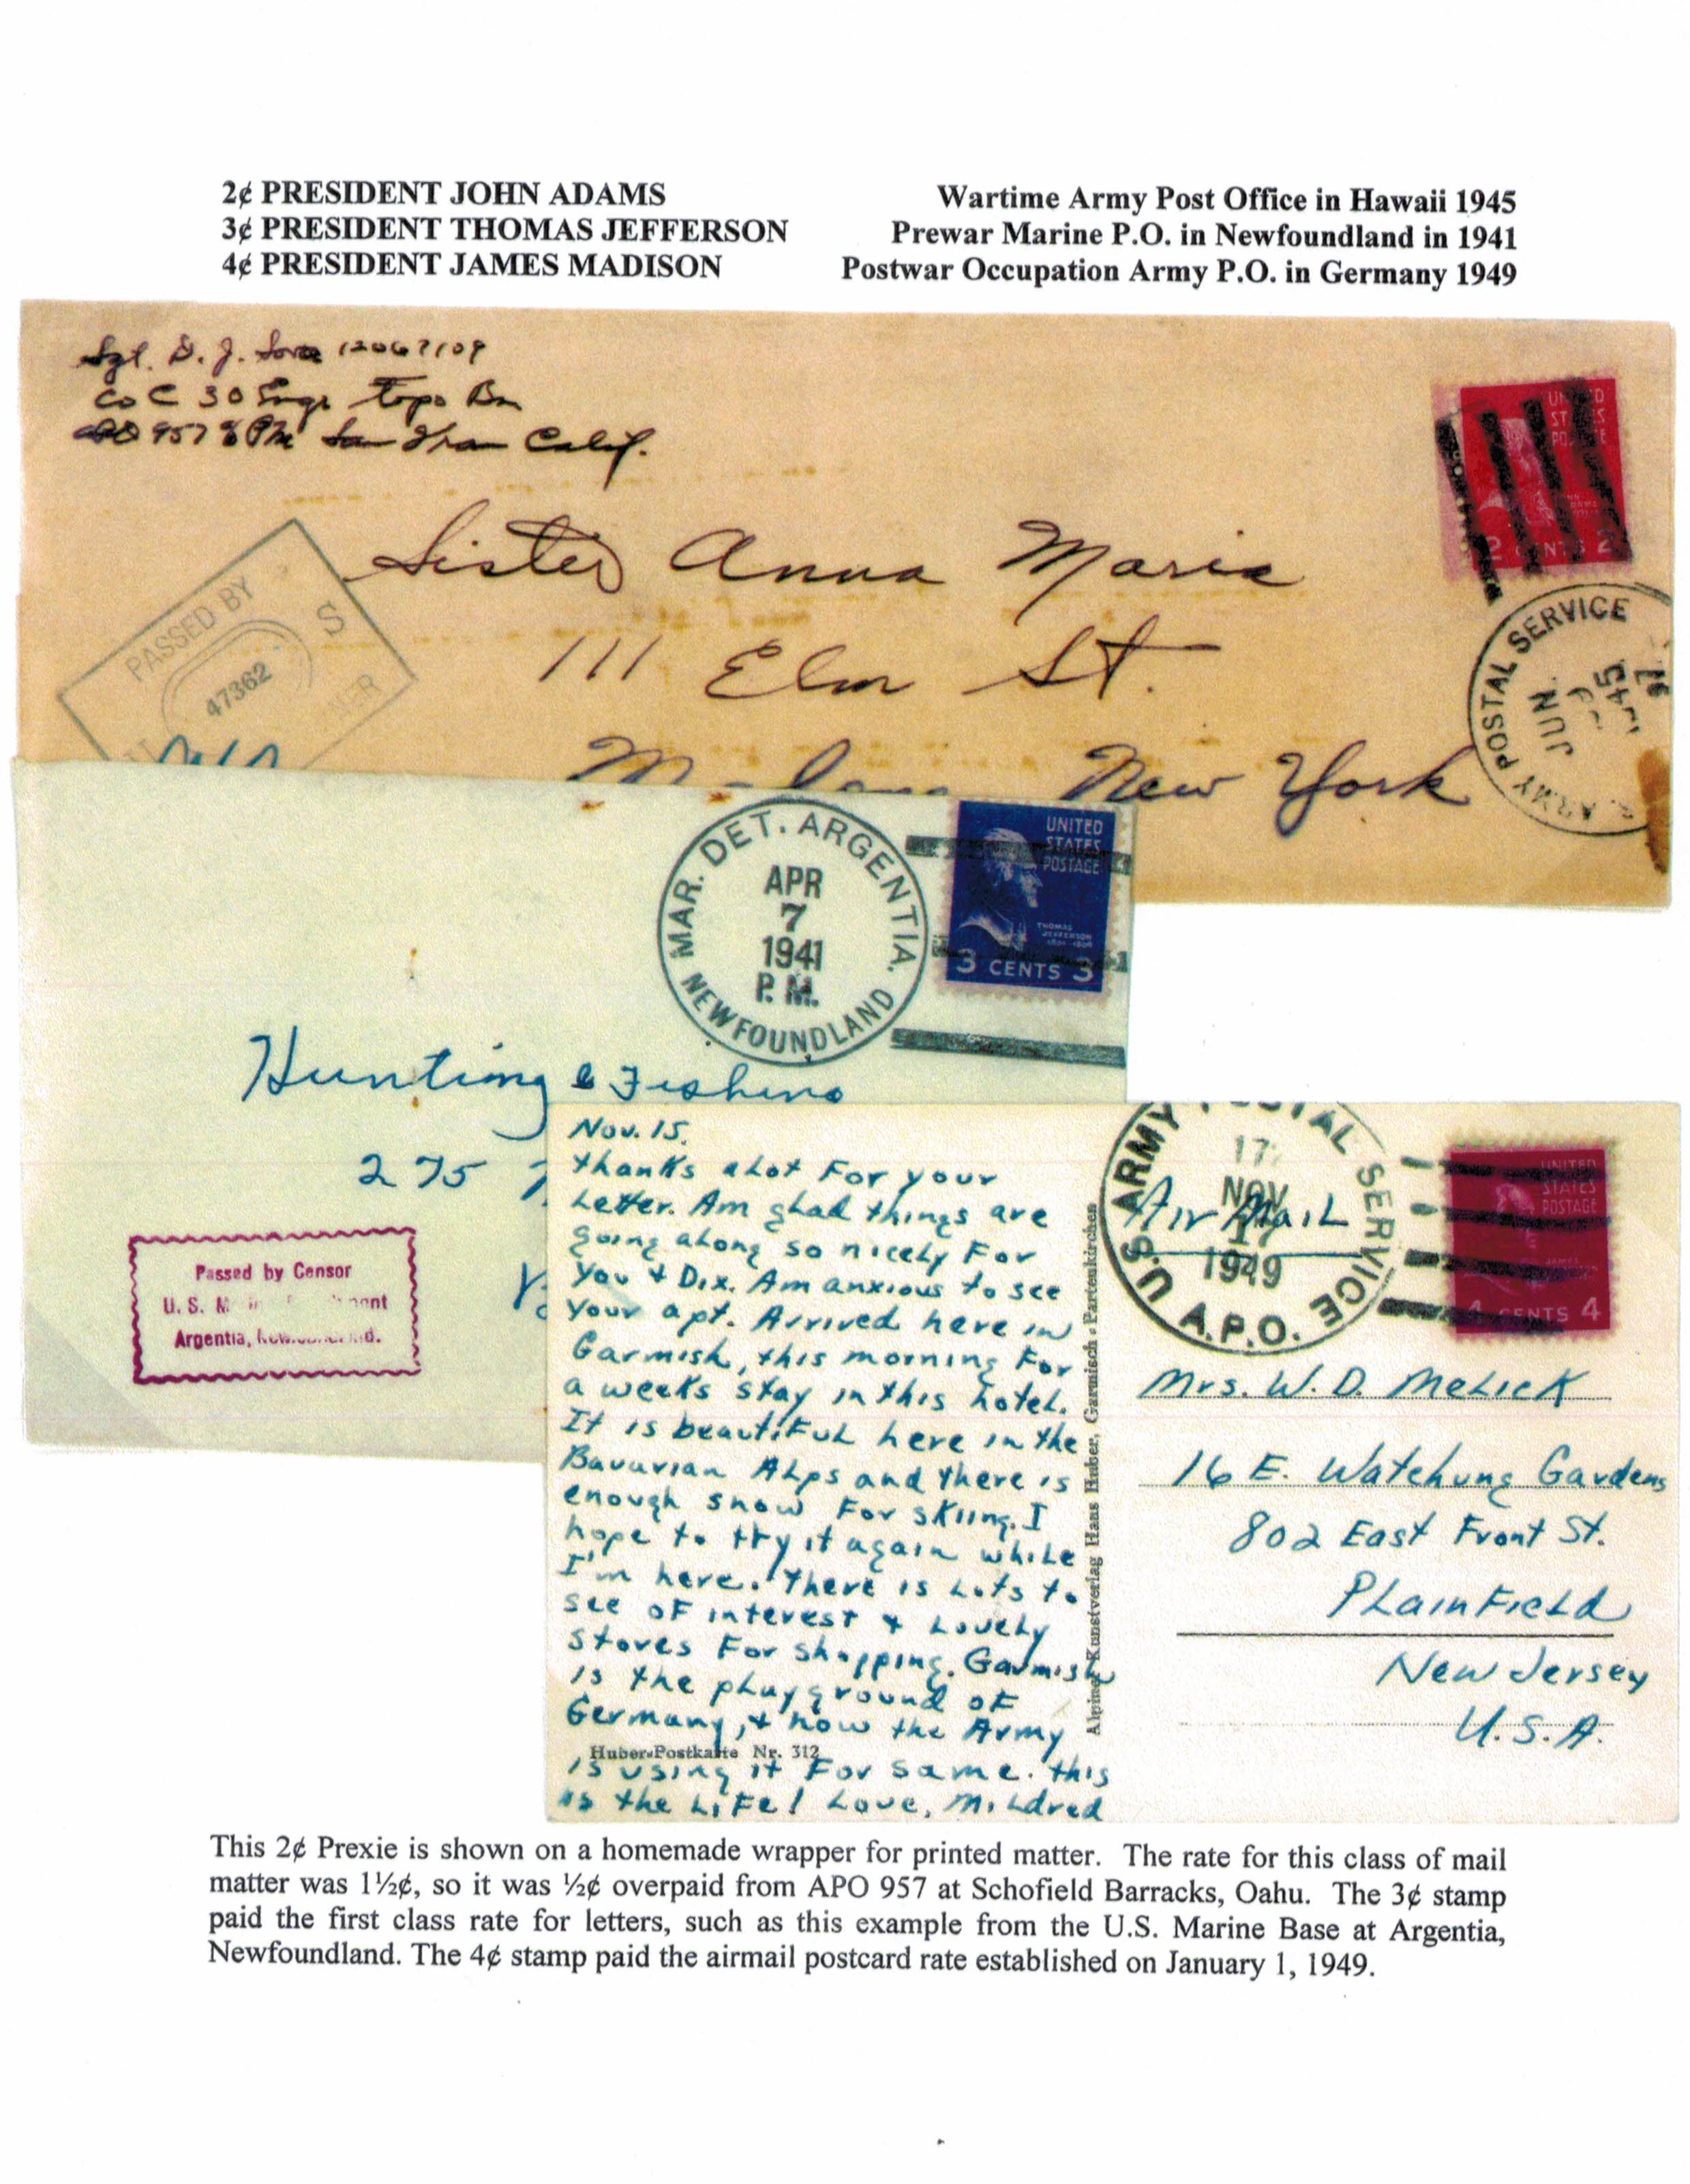 2¢ PRESIDENT JOHN ADAMS
3¢ PRESIDENT THOMAS JEFFERSON
4¢ PRESIDENT JAMES MADISON
Wartime Army Post Office in Hawaii 1945
Prewar Marine P.O. in Newfoundland in 1941
Postwar Occupation Army P.O. in Germany 1949
Sgt. D. J. 12067109
Co C 30 Engr Topo Bn
APO 957 % PM San Fran Calif.
UNITED
STATES
POSTAGE
2 CENTS 2
Sister Anna Maria
111 Elm St.
New York
PASSED BY
47362
S
ARMY POSTAL SERVICE
JUN
1945
MAR. DET. ARGENTIA.
NEWFOUNDLAND
APR
7
1941
P.M.
UNITED
STATES
POSTAGE
THOMAS
JEFFERSON
3 CENTS 3
Hunting & Fishing
275
Passed by Censor
U. S.
Argentia,
Nov. 15.
thanks alot For your
Letter. Am glad things are
going along so nicely For
You & Dix. Am anxious to see
your apt. Arrived here in
Garmish, this morning For
a weeks stay in this hotel.
It is beautiFul here in the
Bavarian Alps and there is
enough snow For skiing. I
hope to try it again while
I'm here. There is Lots to
see oF interest & Lovely
stores For shopping. Garmish
is the playground oF
Germany, & now the Army
is using it For same. this
is the LiFe! Love, Mildred
Huber-Postkarte Nr. 312
Alpiner Kunstverlag Hans Huber, Garmisch-Partenkirchen
U.S. ARMY POSTAL SERVICE
A.P.O.
17
NOV
17
1949
Air Mail
UNITED
STATES
POSTAGE
4 CENTS 4
Mrs. W. D. Melick
16 E. Watchung Gardens
802 East Front St.
PlainField
New Jersey
U.S.A.
This 2¢ Prexie is shown on a homemade wrapper for printed matter. The rate for this class of mail
matter was 1½¢, so it was ½¢ overpaid from APO 957 at Schofield Barracks, Oahu. The 3¢ stamp
paid the first class rate for letters, such as this example from the U.S. Marine Base at Argentia,
Newfoundland. The 4¢ stamp paid the airmail postcard rate established on January 1, 1949.